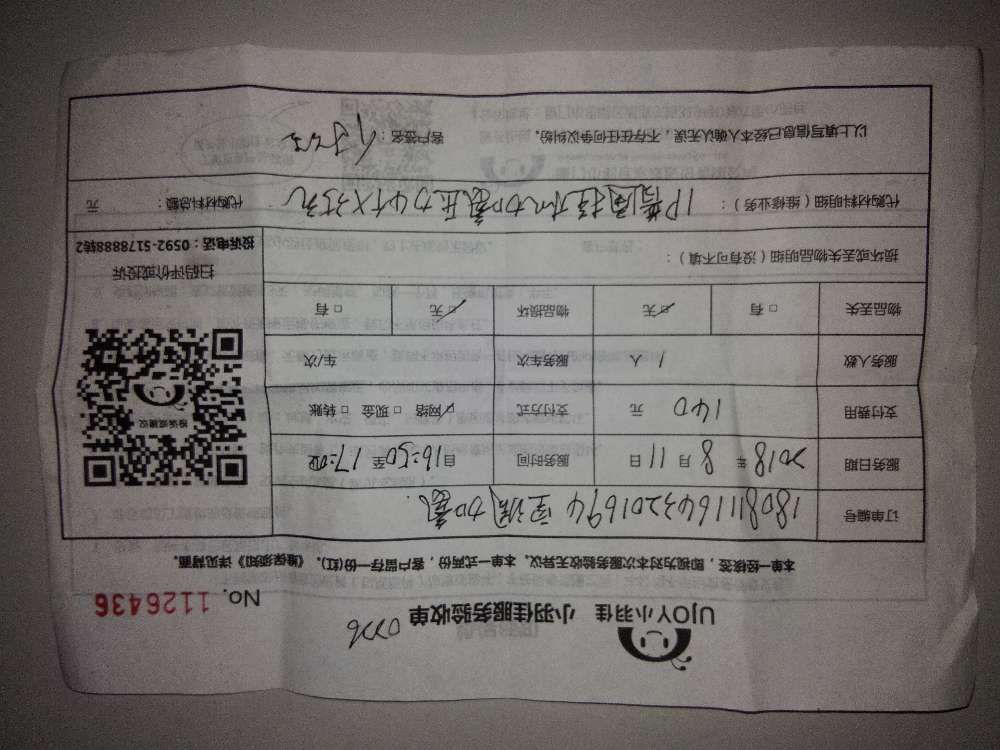 UJOY小羽佳 小羽佳服务验收单
No. 1126436
本单一经核签，即视为对本次服务验收无异议。本单一式两份，客户留存一份(红)。《维保须知》详见背面。
订单编号 1808111643201694 空调加氨
服务日期 2018年 8月11日 服务时间 自16:50至17:00
支付费用 140 元 支付方式 ☑网络 □现金 □转账
服务人数 1 人 服务车次 车/次
物品丢失 □有 ☑无 物品损坏 ☑无 □有
投诉或建议
扫码评价或投诉
投诉电话：0592-5178888转2
损坏或丢失物品明细（没有可不填）：
代购材料明细（维修业务）： 代购材料总额： 元
以上填写信息已经本人确认无误，不存在任何争议纠纷。 客户签名：